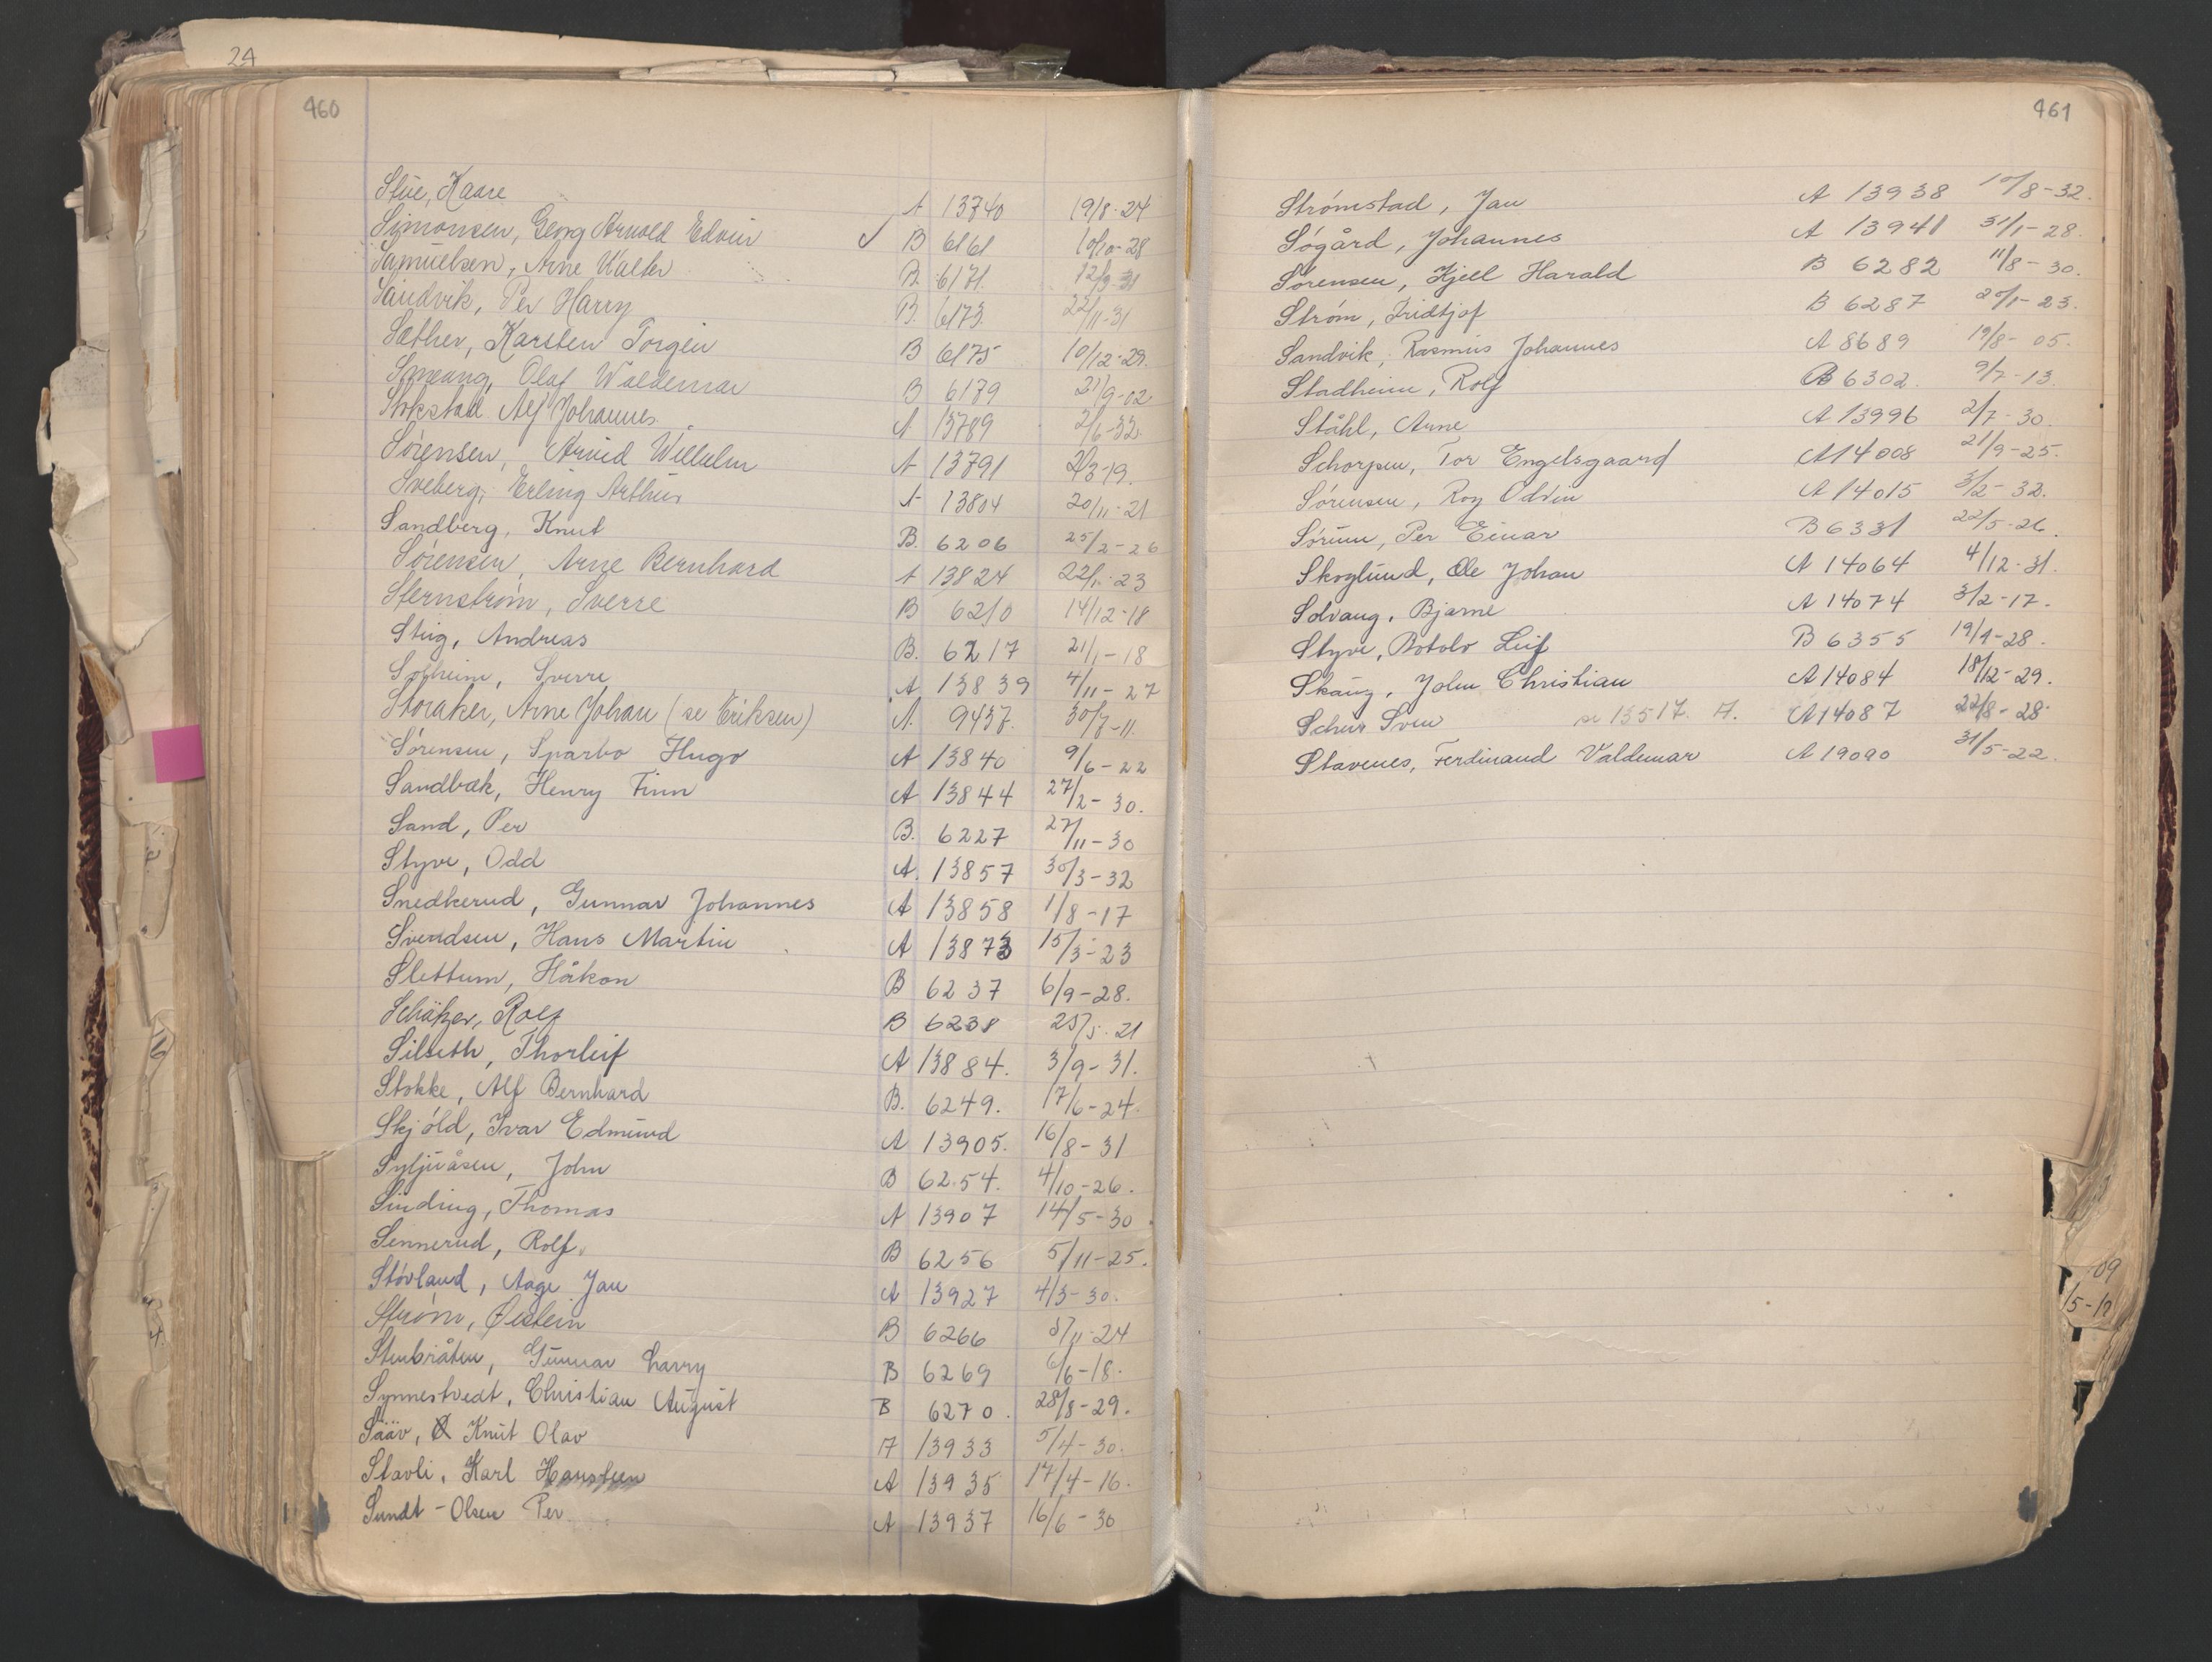 24
460
Stue, Kaare A 13740 19/8-24
Simonsen, Georg Arnold Edvin ✓ B 6161 10/10-28
Samuelsen, Arne Walter B. 6171. 12/9-31
Sandvik, Per Harry B. 6173. 22/11-31
Sæther, Karsten Torgin B 6175 10/12-29.
Smeang, Olaf Waldemar B 6179 21/9-02
Stokstad Alf Johannes A. 13789 2/6-32.
Sörensen, Arvid Willulm A 13791 2/3-19.
Sveberg, Erling Arthur A 13804 20/11-21
Sandberg, Knut B. 6206 25/2-26
Sörensen, Arne Bernhard A 13824 22/1-23
Sternström, Sverre B 6210 14/12-18
Stig, Andreas B. 6217 21/1-18
Solheim, Sverre A 13839 4/11-27
Storaker, Arne Johan (se Eriksen) A. 9437. 30/7-11.
Sørensen, Sparbo Hugo A 13840 9/6-22
Sandbæk, Henry Finn A 13844 27/2-30.
Sand, Per B. 6227 27/11-30
Styve, Odd A. 13857 30/3-32
Snedkerud, Gunnar Johannes A 13858 1/8-17
Svendsen, Hans Martin A 13873 15/3-23
Slettum, Håkon B 6237 6/9-28.
Schäfer, Rolf B 6238 25/5-21
Silseth, Thorleif A 13884. 3/9-31.
Stokke, Alf Bernhard B. 6249. 17/6-24.
Skjöld, Ivar Edmund A 13905. 16/8-31
Syljuåsen, John B 6254. 4/10-26.
Sinding, Thomas A 13907 14/5-30
Sennerud, Rolf B 6256 5/11-25.
Stövland, Aage Jan A 13927 4/3-30.
Strøm, Øistein B 6266 5/11-24
Stenbråten, Gunnar Harry B 6269 6/6-18.
Synnestvedt, Christian August B 6270. 28/8-29.
Sääv, Knut Olav A 13933 5/4-30.
Stavli, Karl Hansteen A 13935 17/4-16.
Sundt-Olsen Per A 13937 16/6-30
461
Strömstad, Jan A 13938 10/8-32.
Søgård, Johannes A 13941 31/1-28.
Sørensen, Kjell Harald B 6282 11/8-30.
Strøm, Fridtjof B 6287 20/1-23.
Sandvik, Rasmus Johannes A 8689 19/8-05.
Stadheim, Rolf B 6302. 9/7-13.
Ståhl, Arne A 13996 2/7-30.
Schorpen, Tor Engelsgaard A 14008 21/9-25.
Sørensen, Roy Odvin A 14015 3/2-32.
Sörum, Per Einar B 6331 22/5-26.
Skoglund, Ole Johan A 14064 4/12-31.
Solvang, Bjarne A 14074 3/2-17.
Styve, Botolv Leif B 6355 19/4-28.
Skaug, John Christian A 14084 18/12-29.
Scheir Sven se 13517 A. A 14087 22/8-28.
Stavenes, Ferdinand Valdemar A 19090 31/5-22.
09
/5-12